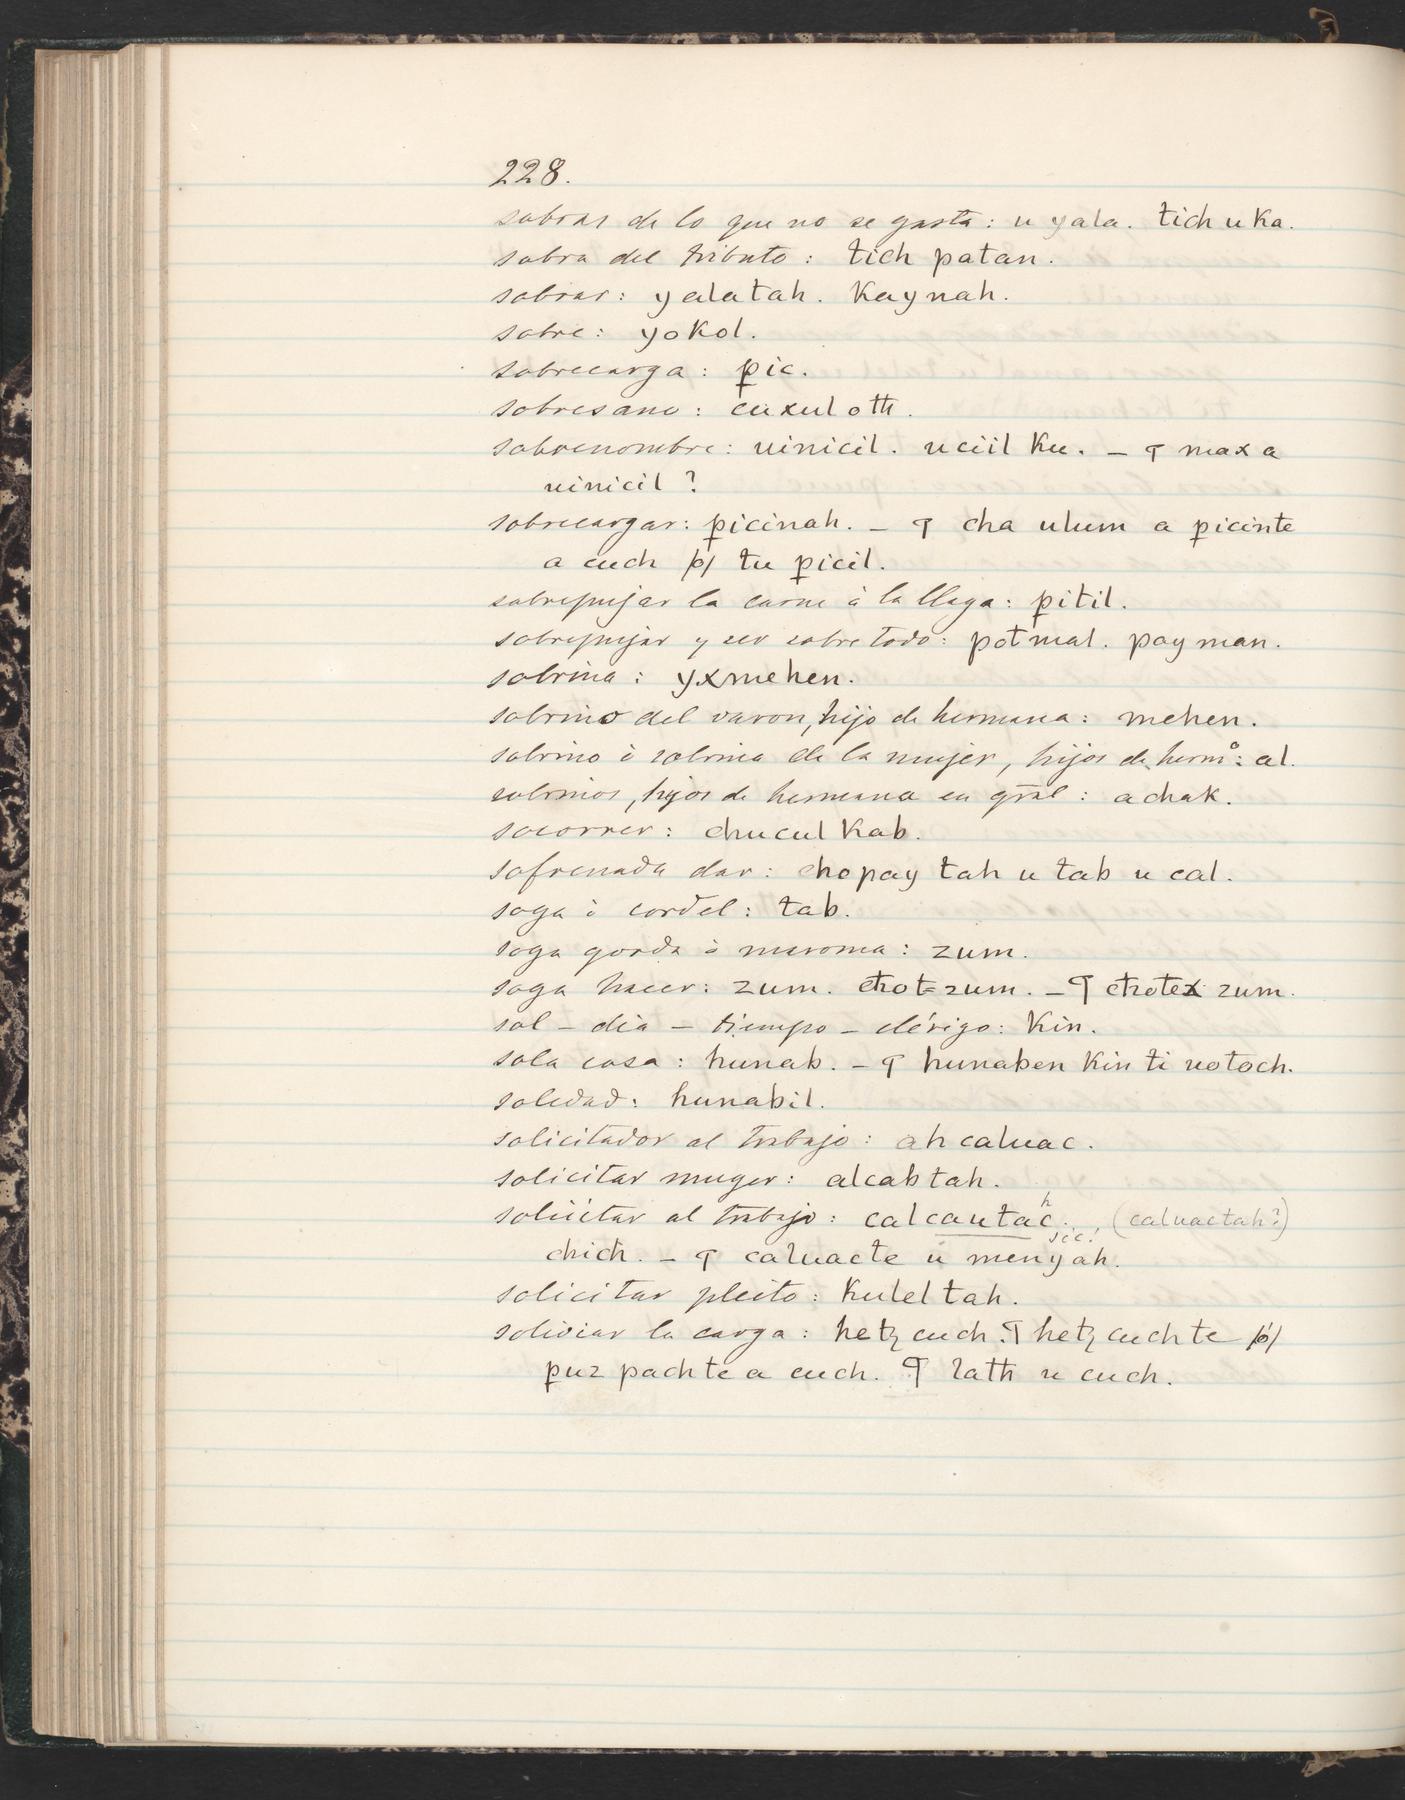 228.
sobras de lo que no se gasta: u yala. tich u ka.
sobra del tributo: tich patan.
sobrar: yalatah. kaynah.
sobre: yokol.
sobrecarga: pic.
sobresano: cuxul otħ.
sobrenombre: uinicil. uciil ku. – ¶ max a
uinicil?
sobrecargar: picinah. – ¶ cha ulum a picinte
a cuch /o/ tu picil.
sobrepujar la carne à la llaga: pitil.
sobrepujar y ser sobre todo: potmal. payman.
sobrina: yxmehen.
sobrino del varon, hijo de hermana: mehen.
sobrino ò sobrina de la mujer, hijos de hermº: al.
sobrinos, hijos de hermana en gral: achak.
socorrer: chucul kab.
sofrenada dar: chopay tah u tab u cal.
soga ò cordel: tab.
soga gorda ò maroma: zum.
soga hacer: zum. cħot=zum. – ¶ cħotex zum.
sol – dia – tiempo – clérigo: kin.
sola cosa: hunab. – ¶ hunaben kin ti uotoch.
soledad: hunabil.
solicitador al trabajo: ah caluac.
solicitar muger: alcabtah.
solicitar al trabajo: calcautac h sic. (caluactah?)
chicħ. – ¶ caluacte u menyah.
solicitar pleito: kuleltah.
soliviar la carga: hetz cuch. ¶ hetz cuchte /ó/
puz pachte a cuch. ¶ latħ u cuch.